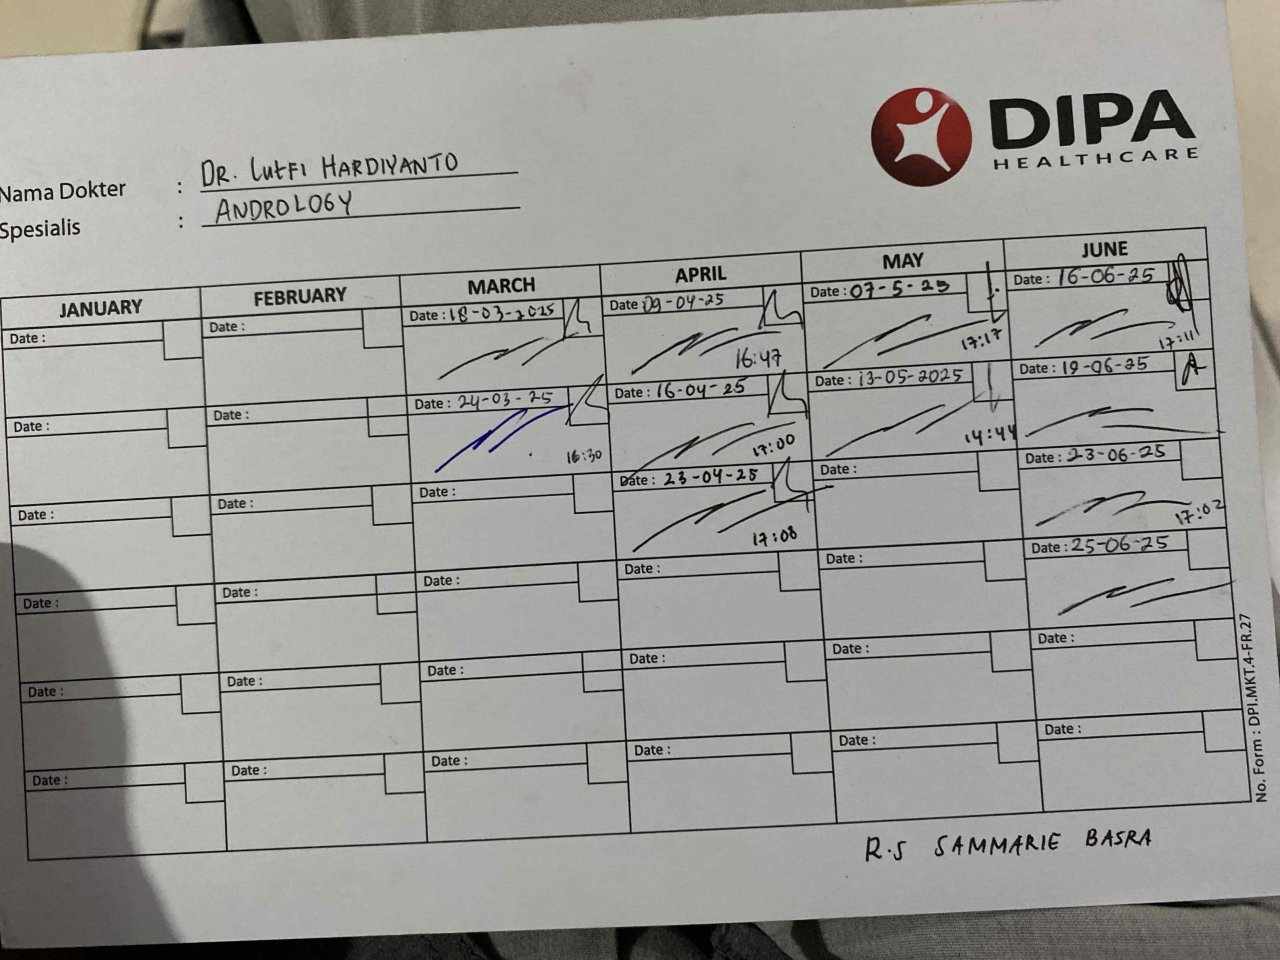 DIPA
HEALTHCARE
Nama Dokter : DR. LUTFI HARDIYANTO
Spesialis : ANDROLOGY
JANUARY FEBRUARY MARCH APRIL MAY JUNE
Date : Date : Date : 18-03-2025 Date 09-04-25 Date : 07-5-25 Date : 16-06-25
16:47 17:17 17:11
Date : Date : Date : 24-03-25 Date : 16-04-25 Date : 13-05-2025 Date : 19-06-25
16:30 17:00 14:44
Date : Date : Date : Date : 23-04-25 Date : Date : 23-06-25
17:08 17:02
Date : Date : Date : Date : Date : Date : 25-06-25
Date : Date : Date : Date : Date : Date :
Date : Date : Date : Date : Date : Date :
No. Form : DPI.MKT.4-FR.27
R.S SAMMARIE BASRA